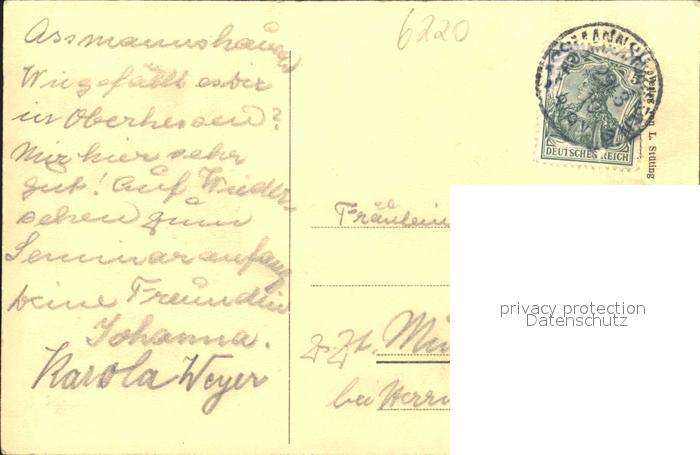 Assmannshausen
6220
Wie gefällt es dir
in Oberhessen?
Mir hier sehr
gut! Auf Wieder-
sehen zum
Seminaranfang
deine Freundin
Johanna.
Karola Weyer
DEUTSCHES REICH
Verlag von L. Stüting
Fräulein
z. Zt. Mü
bei Herrn
privacy protection
Datenschutz